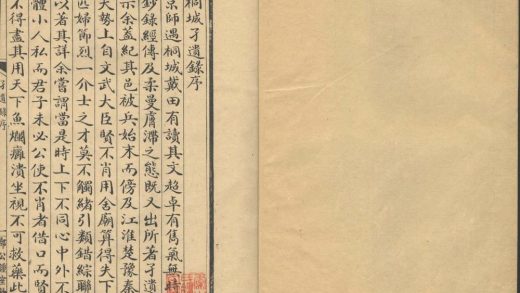 桐城孑遺錄序
京師遇桐城戴田有讀其文超卓有雋氣無時
鈔錄經傳及柔曼膚滯之態既又出所著孑遺
余蓋紀其邑被兵始末而傍及江淮楚豫秦
大勢上自文武大臣賢不肖用舍廟算得失下
匹婦節烈一介士之才莫不觸緒引類錯綜聯
以著其詳余嘗謂當是時上下不同心中外不
體小人私而君子未必公使不肖者借口而賢
不得盡其用天下魚爛癰潰坐視不可救藥此
孑遺錄序
一